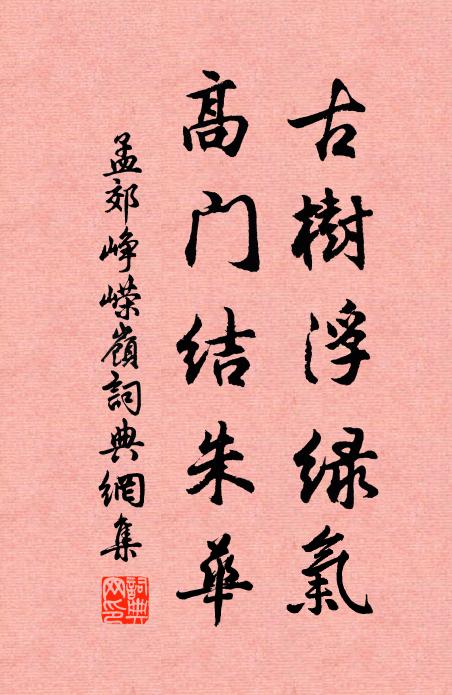 古樹浮緑氣
高门结朱華
孟郊峥嶸嶺詞典網集
詞典网印